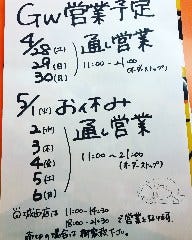 GW営業予定
4/28(土) 通し営業
29(日) 11:00~21:00
30(月) (オーダーストップ)
5/1(火) お休み
2(水) 通し営業
3(木)
4(金) 11:00~21:00
5(土) (オーダーストップ)
6(日)
は 11:00~14:30
18:00~21:30 で営業となります。
の場合は